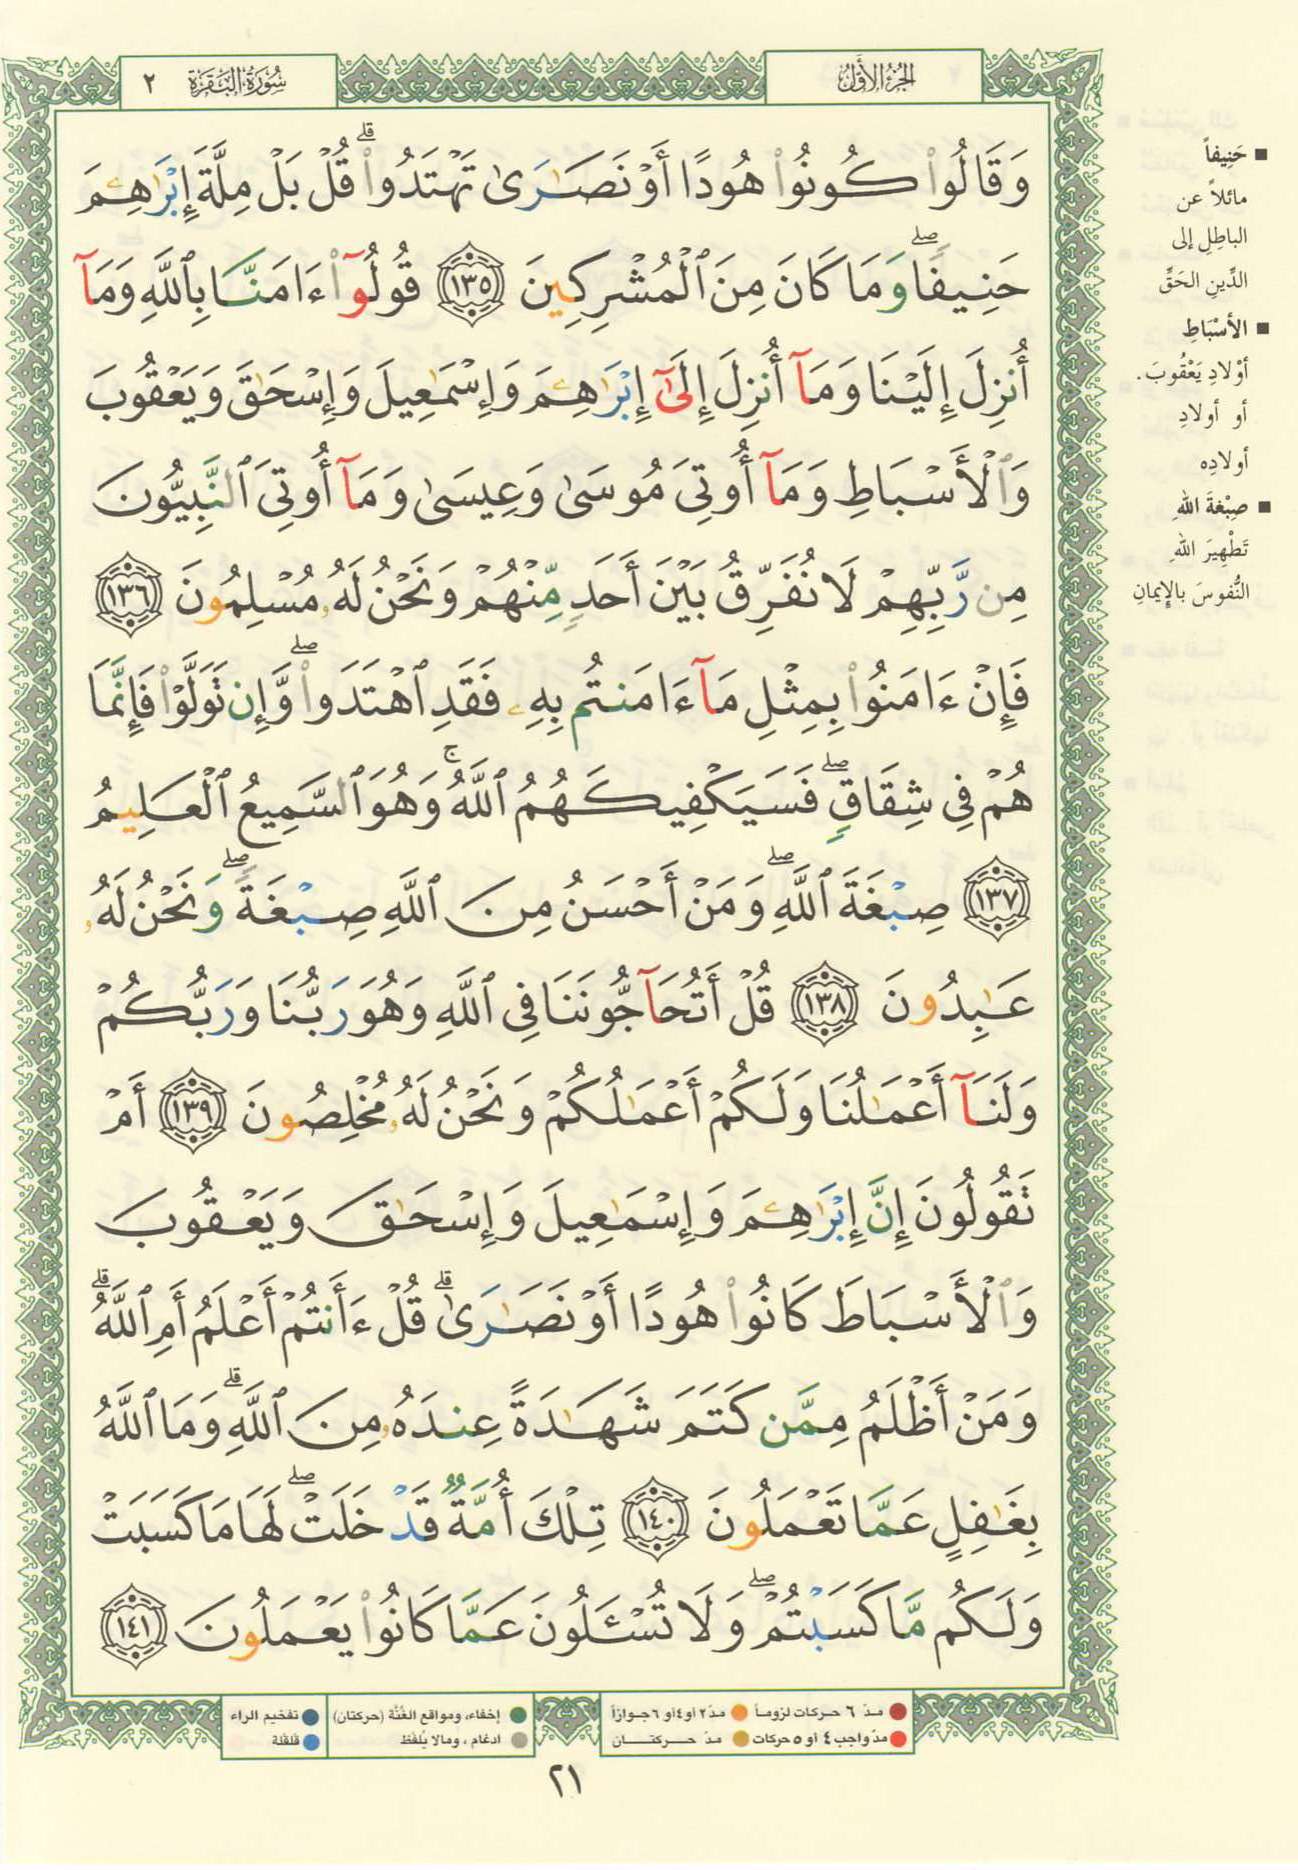 الجزء الأول
سورة البقرة ٢
وَقَالُوا۟ كُونُوا۟ هُودًا أَوْ نَصَـٰرَىٰ تَهْتَدُوا۟ ۗ قُلْ بَلْ مِلَّةَ إِبْرَٰهِـۧمَ
حَنِيفًا ۖ وَمَا كَانَ مِنَ ٱلْمُشْرِكِينَ ١٣٥ قُولُوٓا۟ ءَامَنَّا بِٱللَّهِ وَمَآ
أُنزِلَ إِلَيْنَا وَمَآ أُنزِلَ إِلَىٰٓ إِبْرَٰهِـۧمَ وَإِسْمَـٰعِيلَ وَإِسْحَـٰقَ وَيَعْقُوبَ
وَٱلْأَسْبَاطِ وَمَآ أُوتِىَ مُوسَىٰ وَعِيسَىٰ وَمَآ أُوتِىَ ٱلنَّبِيُّونَ
مِن رَّبِّهِمْ لَا نُفَرِّقُ بَيْنَ أَحَدٍ مِّنْهُمْ وَنَحْنُ لَهُۥ مُسْلِمُونَ ١٣٦
فَإِنْ ءَامَنُوا۟ بِمِثْلِ مَآ ءَامَنتُم بِهِۦ فَقَدِ ٱهْتَدَوا۟ ۖ وَّإِن تَوَلَّوْا۟ فَإِنَّمَا
هُمْ فِى شِقَاقٍ ۖ فَسَيَكْفِيكَهُمُ ٱللَّهُ ۚ وَهُوَ ٱلسَّمِيعُ ٱلْعَلِيمُ
١٣٧ صِبْغَةَ ٱللَّهِ ۖ وَمَنْ أَحْسَنُ مِنَ ٱللَّهِ صِبْغَةً ۖ وَنَحْنُ لَهُۥ
عَـٰبِدُونَ ١٣٨ قُلْ أَتُحَآجُّونَنَا فِى ٱللَّهِ وَهُوَ رَبُّنَا وَرَبُّكُمْ
وَلَنَآ أَعْمَـٰلُنَا وَلَكُمْ أَعْمَـٰلُكُمْ وَنَحْنُ لَهُۥ مُخْلِصُونَ ١٣٩ أَمْ
تَقُولُونَ إِنَّ إِبْرَٰهِـۧمَ وَإِسْمَـٰعِيلَ وَإِسْحَـٰقَ وَيَعْقُوبَ
وَٱلْأَسْبَاطَ كَانُوا۟ هُودًا أَوْ نَصَـٰرَىٰ ۗ قُلْ ءَأَنتُمْ أَعْلَمُ أَمِ ٱللَّهُ ۗ
وَمَنْ أَظْلَمُ مِمَّن كَتَمَ شَهَـٰدَةً عِندَهُۥ مِنَ ٱللَّهِ ۗ وَمَا ٱللَّهُ
بِغَـٰفِلٍ عَمَّا تَعْمَلُونَ ١٤٠ تِلْكَ أُمَّةٌ قَدْ خَلَتْ ۖ لَهَا مَا كَسَبَتْ
وَلَكُم مَّا كَسَبْتُمْ ۖ وَلَا تُسْـَٔلُونَ عَمَّا كَانُوا۟ يَعْمَلُونَ ١٤١
■ حَنِيفاً
مائلاً عن
الباطِلِ إلى
الدِّينِ الحَقِّ
■ الأَسْبَاطِ
أوْلادِ يَعْقُوبَ.
أو أولادِ
أولادِه
■ صِبْغَةَ اللهِ
تَطْهِيرَ اللهِ
النُّفوسَ بالإِيمانِ
مدّ ٦ حركات لزوماً مدّ ٢ أو ٤ أو ٦ جوازاً إخفاء، ومواقع الغُنَّة (حركتان) تفخيم الراء
مدّ واجب ٤ أو ٥ حركات مدّ حركتان ادغام ، ومالا يُلفَظ قلقلة
٢١